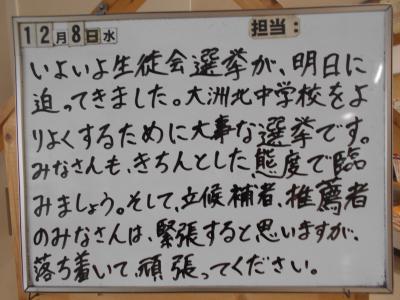 12月8日水 担当：
いよいよ生徒会選挙が、明日に
迫ってきました。大洲北中学校をよ
りよくするために大事な選挙です。
みなさんも、きちんとした態度で臨
みましょう。そして、立候補者、推薦者
のみなさんは、緊張すると思いますが、
落ち着いて、頑張ってください。